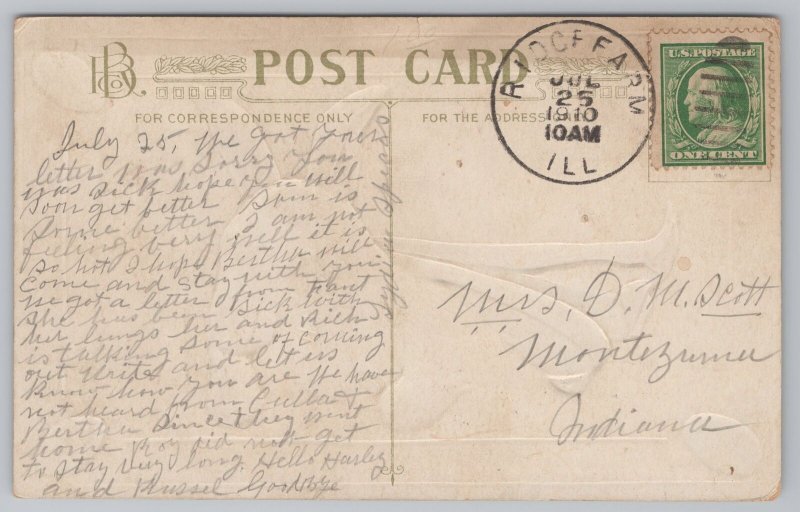 POST CARD
FOR CORRESPONDENCE ONLY
FOR THE ADDRESS ONLY
RIDGE FARM
JUL
25
1910
10AM
ILL
U.S. POSTAGE
ONE CENT
July 25, We got your
letter was Sorry you
was sick hope you will
Soon get better Sam is
some better I am not
feeling very well it is
so hot I hope Bertha will
come and stay with you
we got a letter from Fant
She has been Sick with
her lungs her and Rich
is talking some of coming
out Write and let us
Know how you are We have
not heard from Culla &
Bertha Since they went
home Roy did not get
to stay very long. Hello Harley
and Russel Goodbye
Mrs. D. M. Scott
Montezuma
Indiana